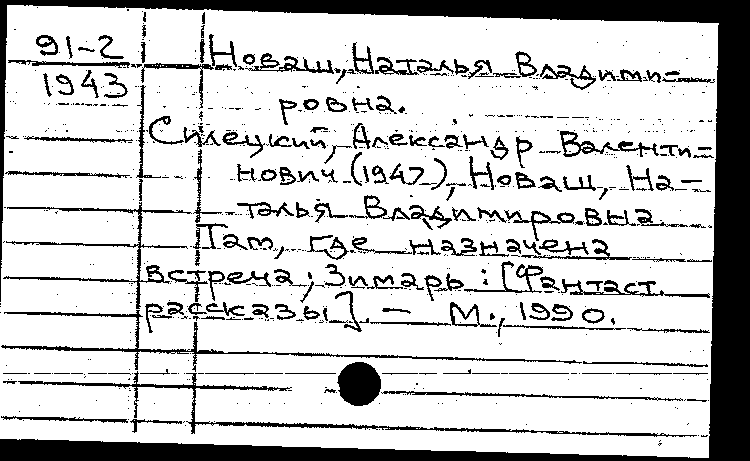 91-2
1943
Новаш, Наталья Владими-
ровна.
Силецкий, Александр Валенти-
нович (1947), Новаш, На-
талья Владимировна
Там, где назначена
встреча; Зимарь : [Фантаст.
рассказы]. — М., 1990.